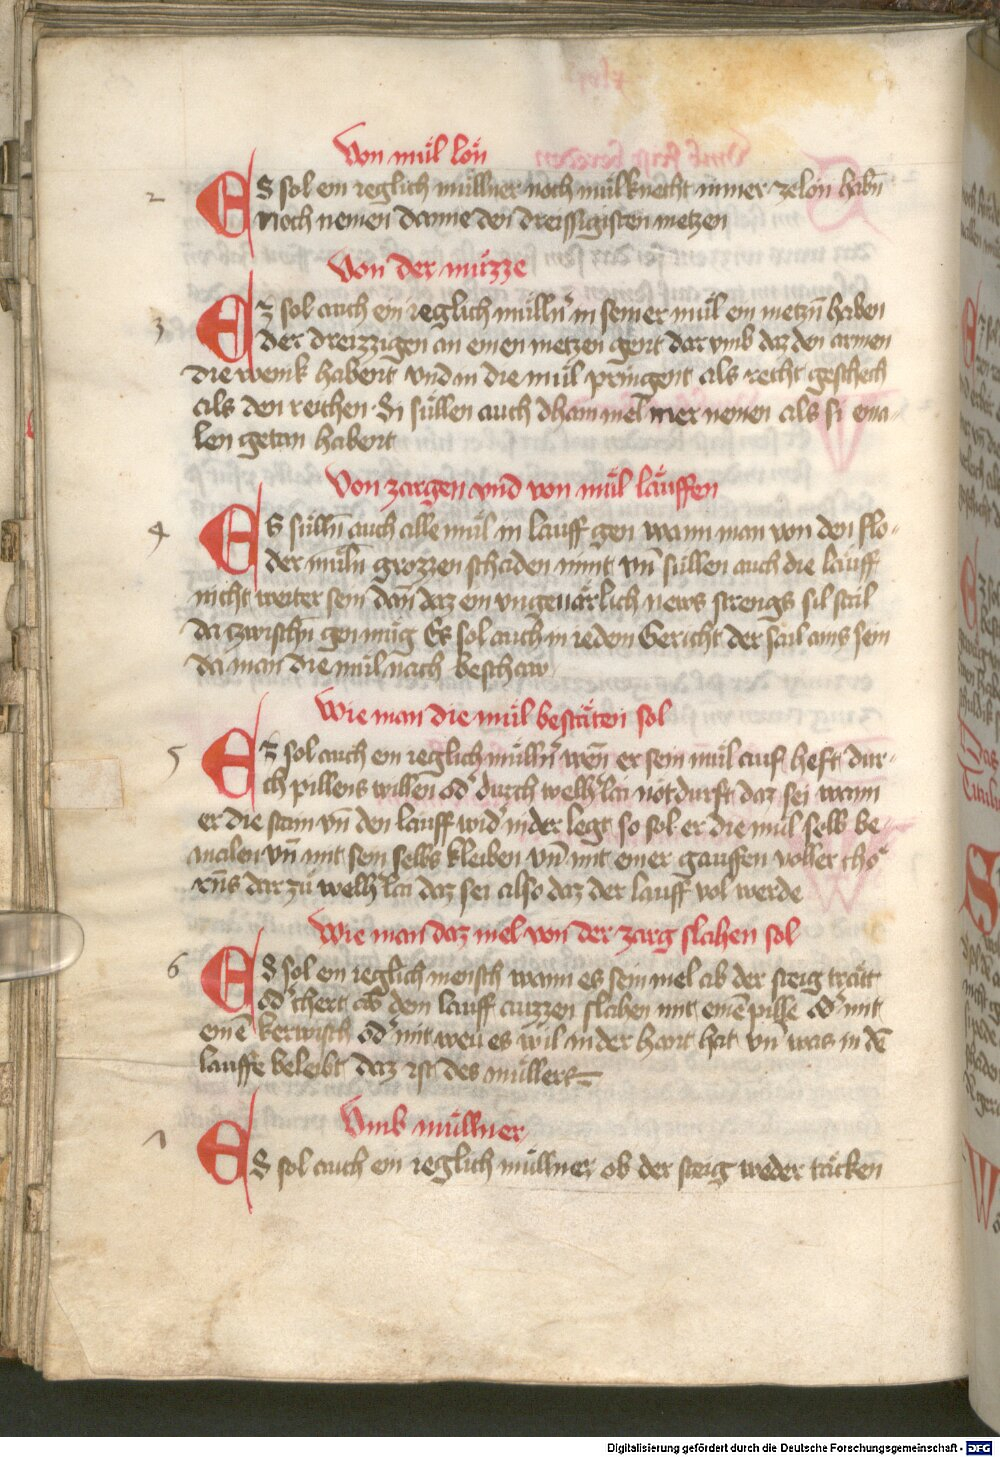 Von mül lon
2 ES sol ein yeglich müllner noch mülknecht nimer ze lon habn
noch nemen danne den dreissigisten metzen
Von der muzze
3 Ez sol auch ein yeglich mülln̄ in seiner mül ein metzn̄ haben
der dreizzigen an einen metzen gent dar vmb daz den armen
die wenik habent vnd in die mül pringent als recht geschech
als den reichen Si süllen auch dhain mel mer nemen als si ema
len getan habent
Von zargen vnd von mül läuffen
4 ES sülln̄ auch alle mül in lauff gen wann man von den flo-
der müln grozzen schaden nimt vn̄ süllen auch die läuff
nicht weiter sein dan̄ daz ein vngeuärlich news strengs sil sail
da zwischn̄ gen müg Es sol auch in yedem Gericht der sail ains sein
da man die mül nach beschaw
Wie man die mül bestäten sol
5 Ez sol auch ein yeglich mülln̄ wen̄ er sein mül auf heft dur-
ch pillens willen od̄ durch welh̄lai notdurft daz sei wann
er die stain vn̄ den lauff wid̄ nider legt so sol er die mül selb be-
malen vn̄ mit sein selbs kleiben vn̄ mit einer gauffen voller cho
rn̄s dar zů welh̄lai daz sei also daz der lauff vol werde
Wie man daz mel von der zarg slahen sol
6 ES sol ein yeglich mensch wann es sein mel ab der steig trätt
od̄ chert ab dem lauff auzzen slahen mit eine͞ pille od̄ mit
eine͞ kerwisch od̄ mit weu es wil in der hant hat vn̄ was in de͞
lauffe beleibt daz ist des müllers
Vmb müllner
7 ES sol auch ein yeglich müllner ob der steig weder täcken
Digitalisierung gefördert durch die Deutsche Forschungsgemeinschaft - DFG